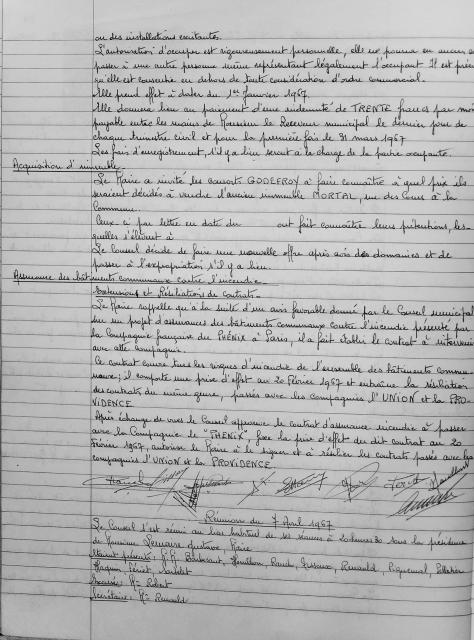 ou des installations existantes.
L'autorisation d'occuper est rigoureusement personnelle, elle ne pourra en aucun cas
passer à une autre personne même représentant légalement l'occupant. Il est précisé
qu'elle est consentie en dehors de toute considération d'ordre commercial.
Elle prend effet à dater du 1er Janvier 1967.
Elle donnera lieu au paiement d'une indemnité de TRENTE francs par mois
payable entre les mains de Monsieur le Receveur municipal le dernier jour de
chaque trimestre civil et pour la première fois le 31 mars 1967
Les frais d'enregistrement, s'il y a lieu seront à la charge de la partie occupante.
Acquisition d'immeuble.
Le Maire a invité les consorts GODEFROY à faire connaître à quel prix ils
seraient décidés à vendre l'ancien immeuble MORTAL, rue des Cours à la
Commune.
Ceux-ci par lettre en date du ont fait connaître leurs prétentions, les-
quelles s'élèvent à
Le Conseil décide de faire une nouvelle offre après avis des domaines et de
passer à l'expropriation s'il y a lieu.
Assurance des bâtiments communaux contre l'incendie
Extensions et Résiliations de contrats.
Le Maire rappelle qu'à la suite d'un avis favorable donné par le Conseil municipal
sur un projet d'assurances des bâtiments communaux contre l'incendie présenté par
la Compagnie française du PHÉNIX à Paris, il a fait établir le contrat à intervenir
avec cette compagnie.
Ce contrat couvre tous les risques d'incendie de l'ensemble des bâtiments commu-
naux ; il comporte une prise d'effet au 20 Février 1967 et entraîne la résiliation
des contrats du même genre, passés avec les compagnies l'UNION et la PRO-
VIDENCE
Après échange de vues le Conseil approuve le contrat d'assurance incendie à passer
avec la Compagnie le "PHÉNIX", fixe la prise d'effet du dit contrat au 20
Février 1967, autorise le Maire à le signer et à résilier les contrats passés avec les
compagnies l'UNION et la PROVIDENCE
Réunion du 7 Avril 1967
Le Conseil s'est réuni au lieu habituel de ses séances à 20 heures 30 sous la présidence
de Monsieur Lemaire Gustave, Maire
Etaient présents :
Secrétaire : Mr Renauld